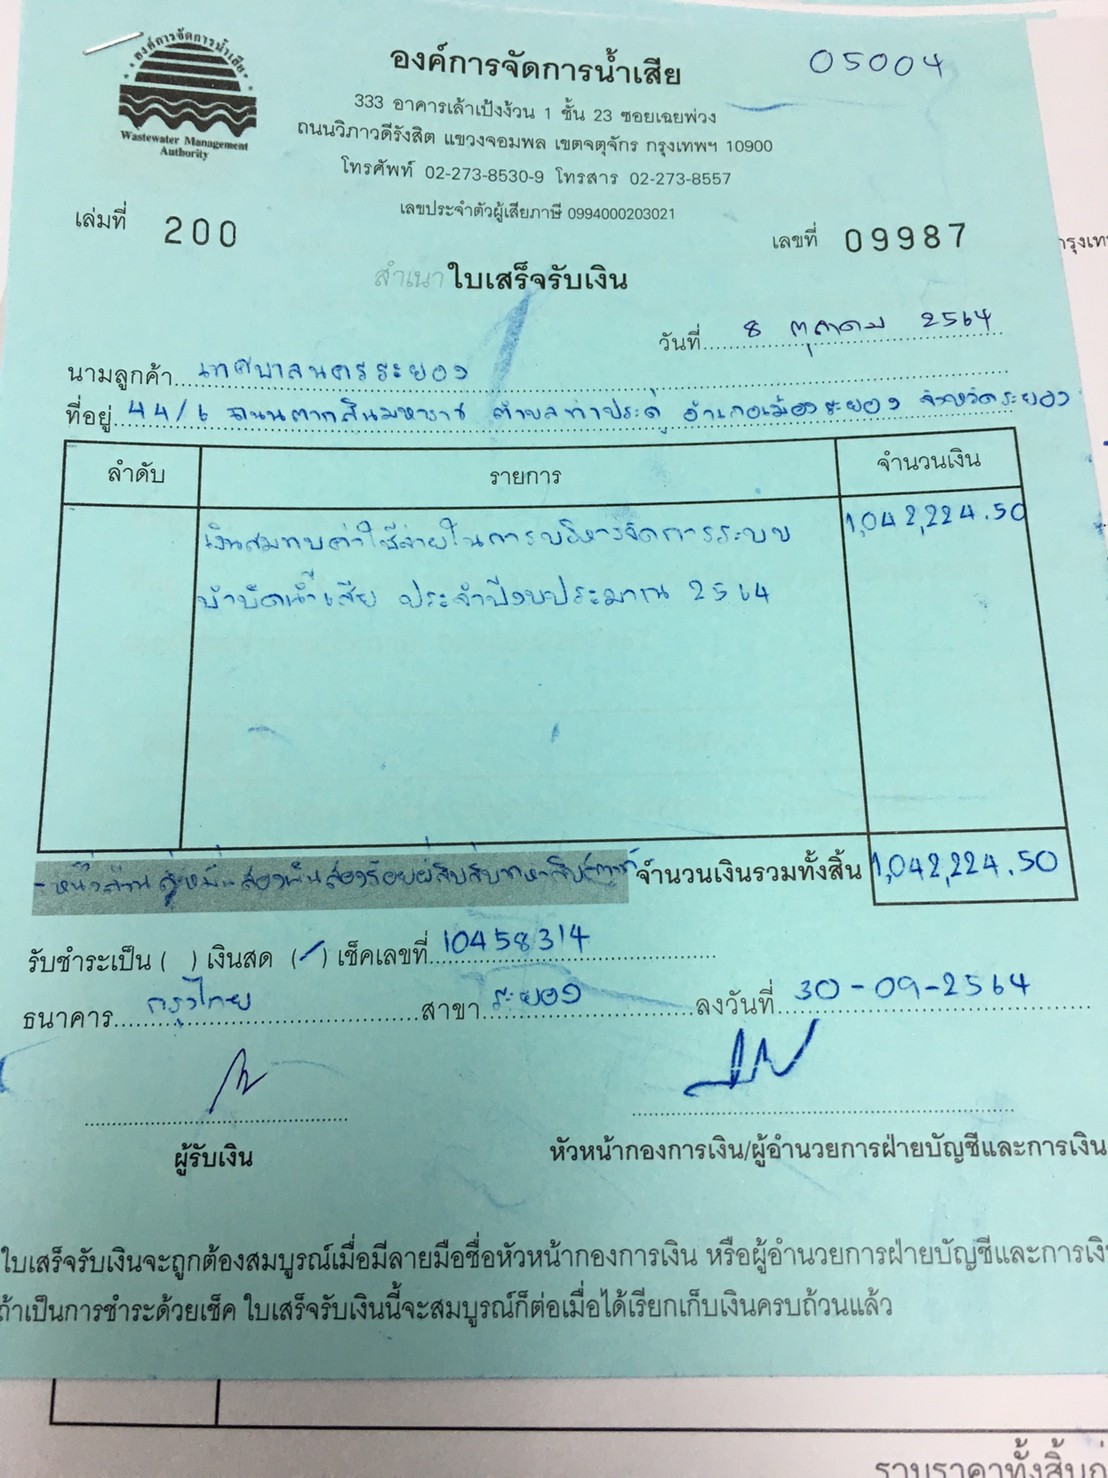 องค์การจัดการน้ำเสีย
05004
333 อาคารเล้าเป้งง้วน 1 ชั้น 23 ซอยเฉยพ่วง
ถนนวิภาวดีรังสิต แขวงจอมพล เขตจตุจักร กรุงเทพฯ 10900
โทรศัพท์ 02-273-8530-9 โทรสาร 02-273-8557
เลขประจำตัวผู้เสียภาษี 0994000203021
องค์การจัดการน้ำเสีย
Wastewater Management
Authority
เล่มที่ 200
เลขที่ 09987
สำเนา ใบเสร็จรับเงิน
วันที่ 8 ตุลาคม 2564
นามลูกค้า เทศบาลนครระยอง
ที่อยู่ 44/6 ถนนตากสินมหาราช ตำบลท่าประดู่ อำเภอเมืองระยอง จังหวัดระยอง
ลำดับ รายการ จำนวนเงิน
เงินสมทบค่าใช้จ่ายในการบริหารจัดการระบบ 1,042,224.50
บำบัดน้ำเสีย ประจำปีงบประมาณ 2564
-หนึ่งล้านสี่หมื่นสองพันสองร้อยยี่สิบสี่บาทห้าสิบสตางค์ จำนวนเงินรวมทั้งสิ้น 1,042,224.50
รับชำระเป็น ( ) เงินสด (/) เช็คเลขที่ 10458314
ธนาคาร กรุงไทย สาขา ระยอง ลงวันที่ 30-09-2564
ผู้รับเงิน
หัวหน้ากองการเงิน/ผู้อำนวยการฝ่ายบัญชีและการเงิน
ใบเสร็จรับเงินจะถูกต้องสมบูรณ์เมื่อมีลายมือชื่อหัวหน้ากองการเงิน หรือผู้อำนวยการฝ่ายบัญชีและการเงิ
ถ้าเป็นการชำระด้วยเช็ค ใบเสร็จรับเงินนี้จะสมบูรณ์ก็ต่อเมื่อได้เรียกเก็บเงินครบถ้วนแล้ว